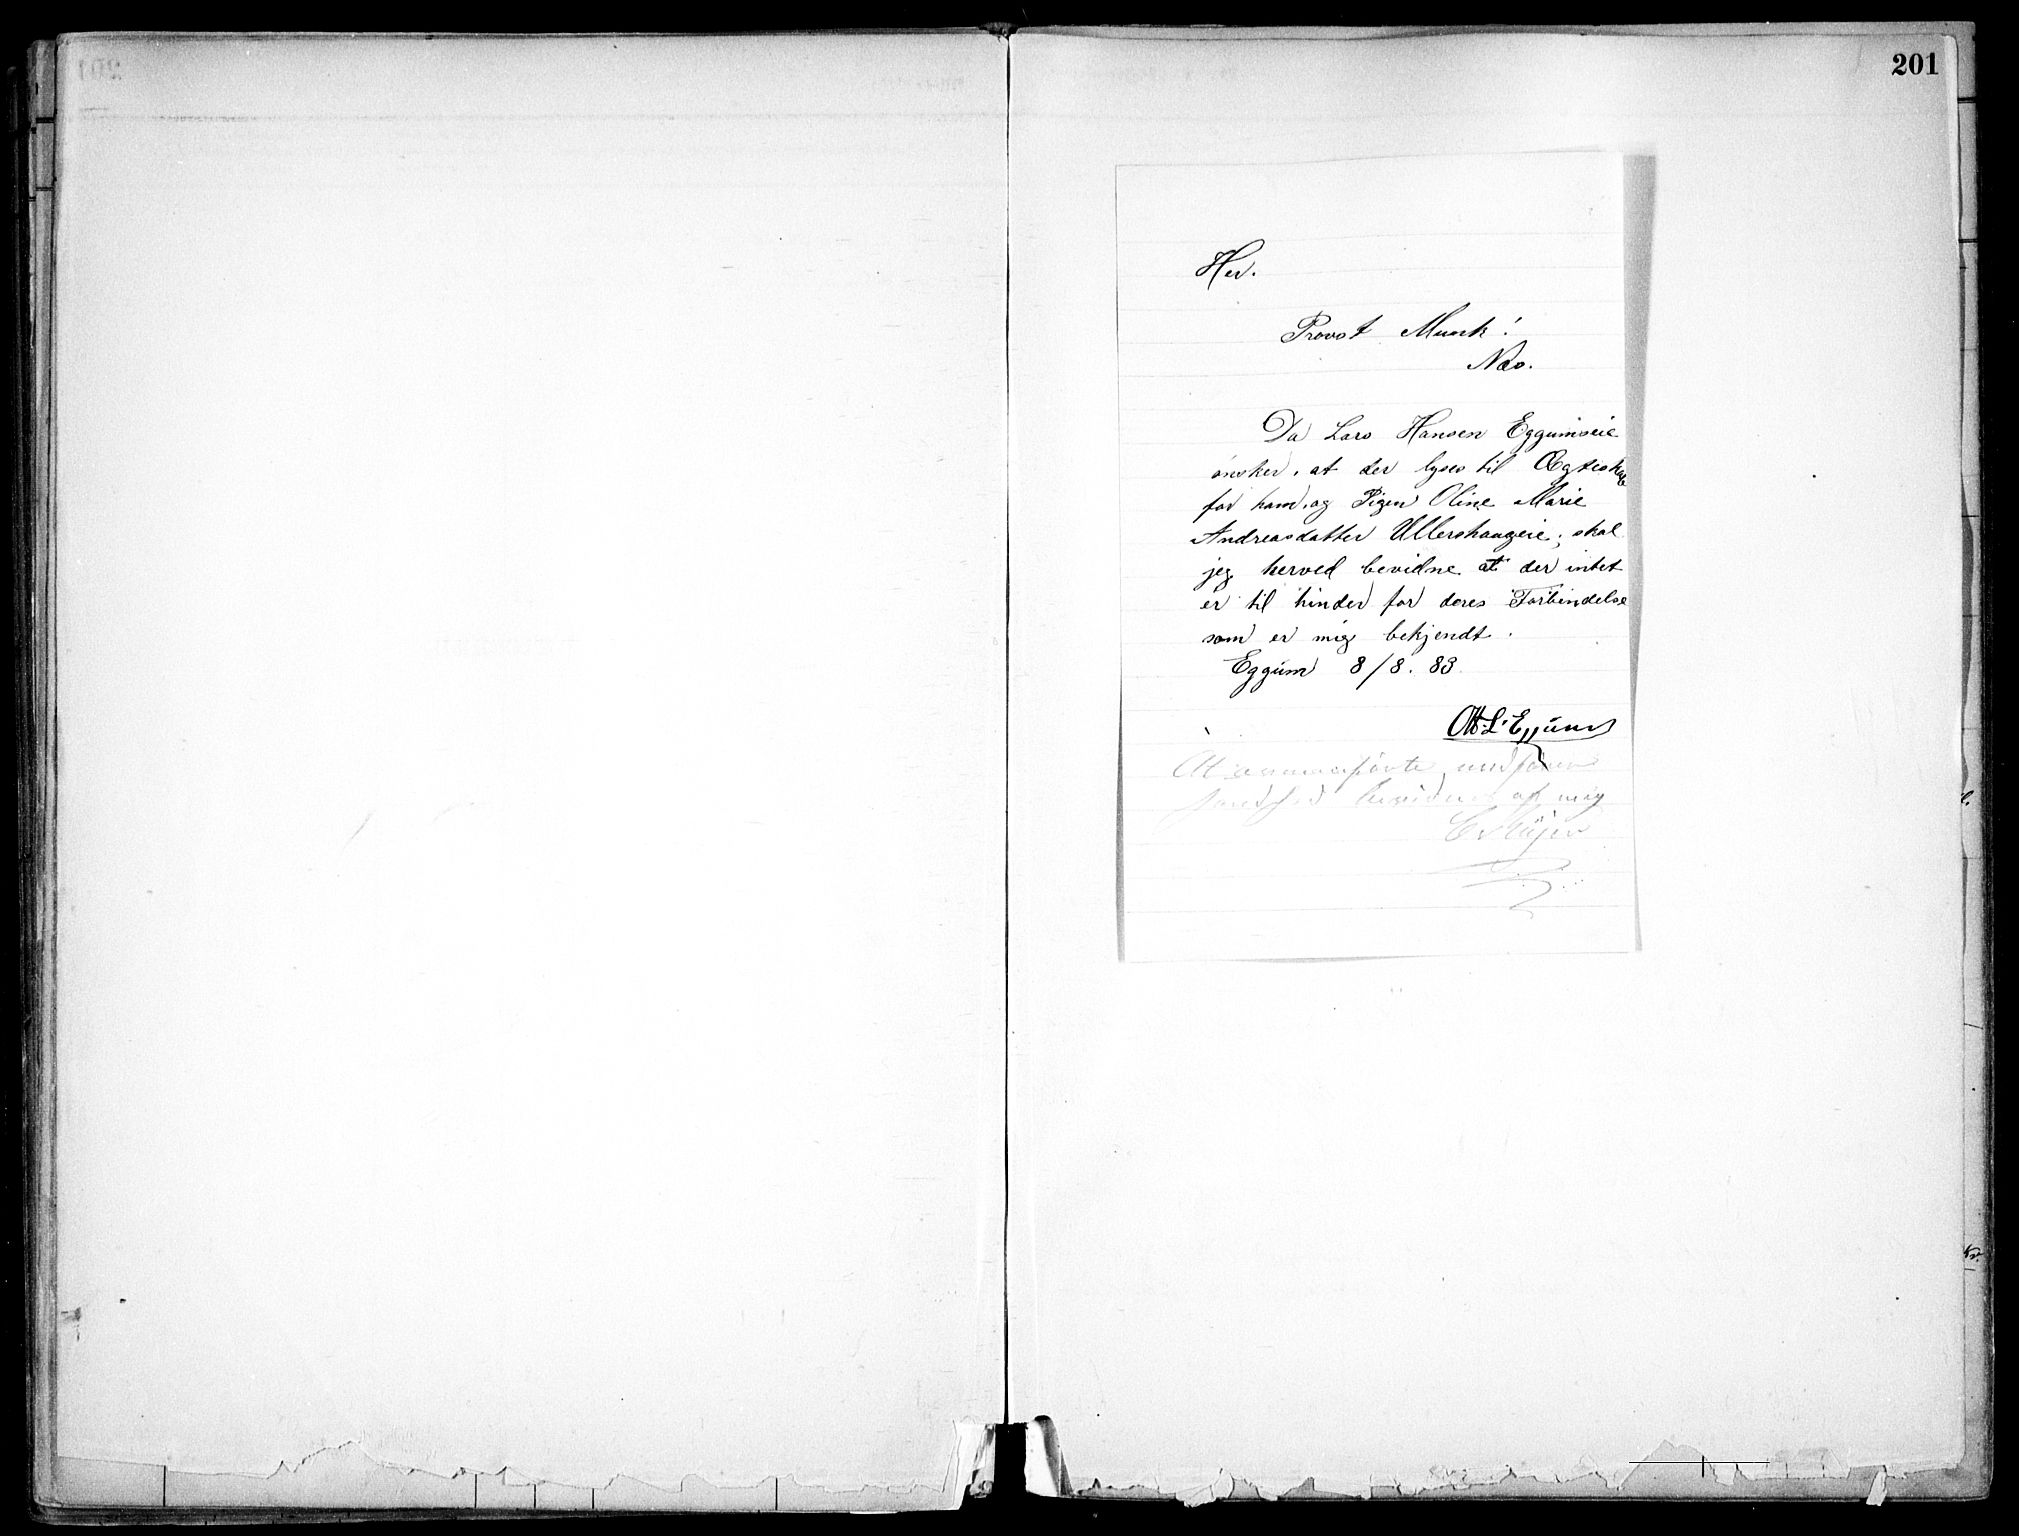 201
Her.
Provst Munk!
Næs.
Da Lars Hansen Eggumseie
ønsker, at der lyses til Ægteskab
for ham og Pigen Oline Marie
Andreasdatter Ullershaugeie; skal
jeg herved bevidne at der intet
er til hinder for deres Forbindelse
som er mig bekjendt.
Eggum 8/8. 83.
L. Eggum
At ovenanførte medfører
sandhed bevidnes af mig